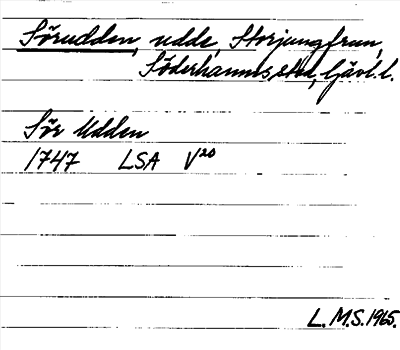 Sörudden, udde, Storjungfrun,
Söderhamns stad, Gävl. l.
Sör Udden
1747 LSA V20
L.M.S. 1965.